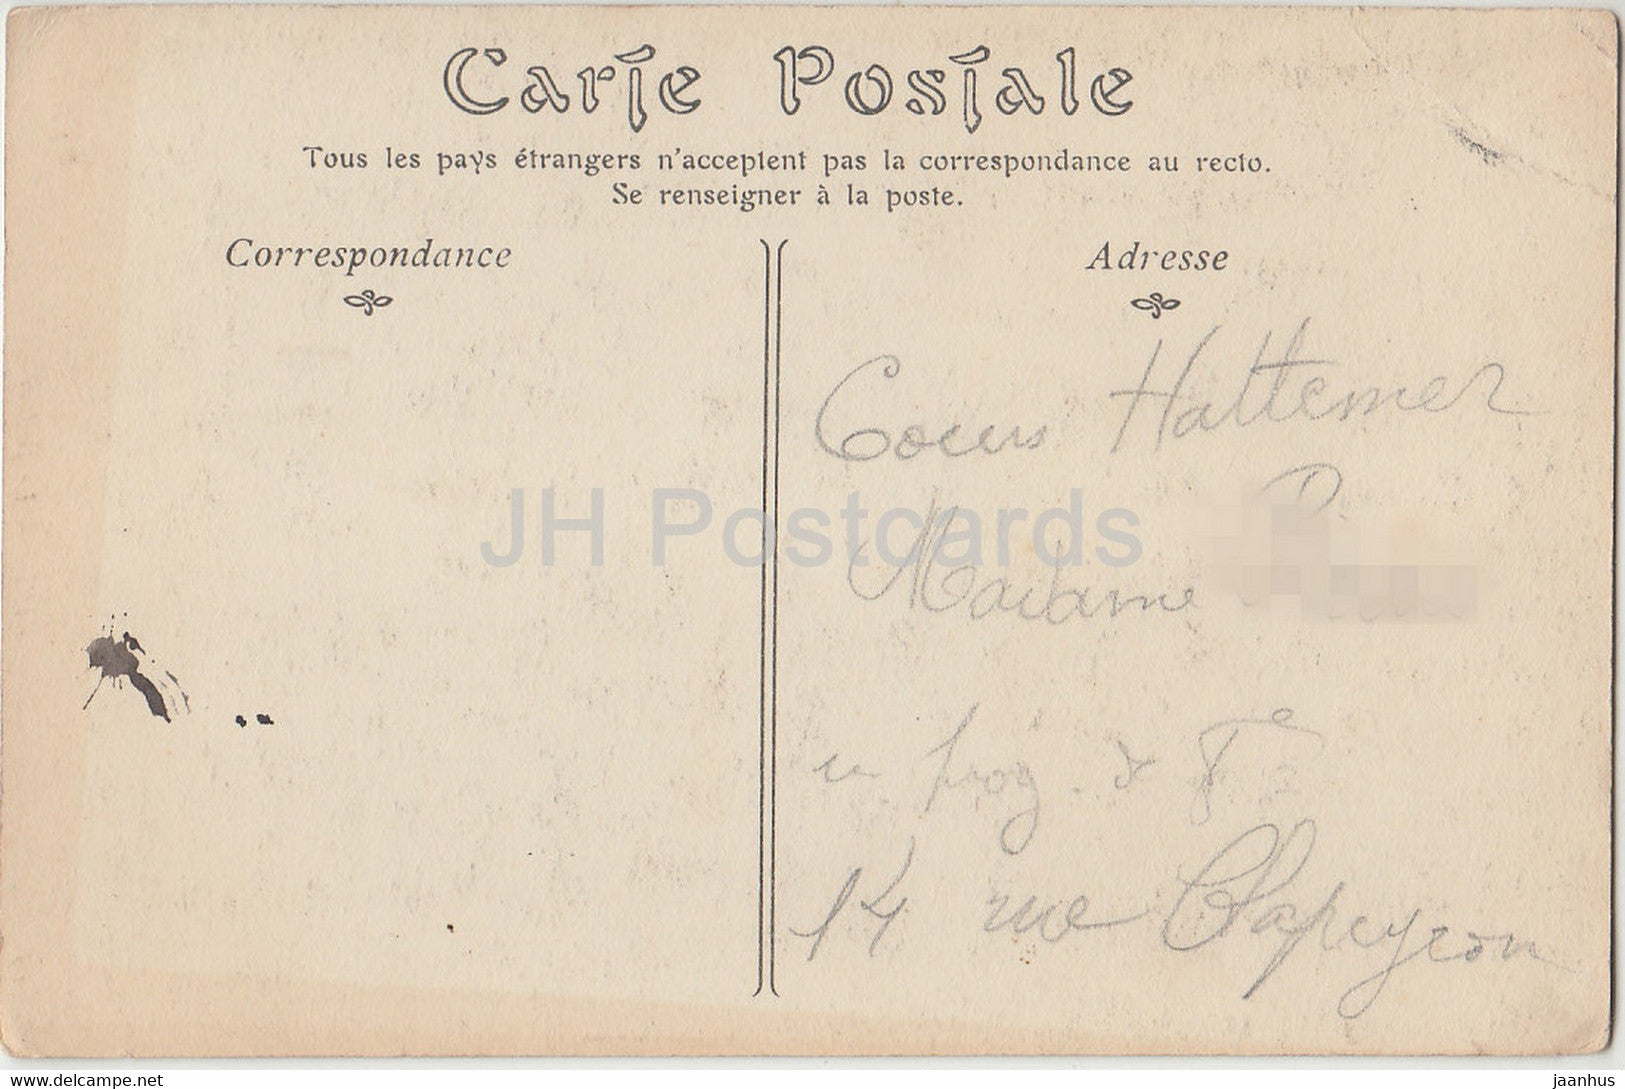 Carte Postale
Tous les pays étrangers n'acceptent pas la correspondance au recto.
Se renseigner à la poste.
Correspondance
Adresse
Cours Hattemer
JH Postcards
Madame
14 rue
delcampe.net
jaanhus